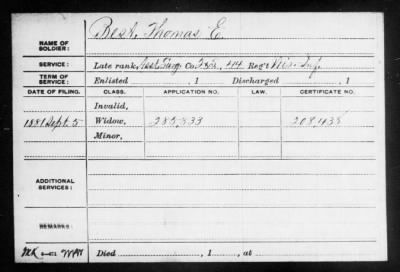 NAME OF SOLDIER: Best, Thomas E.
SERVICE: Late rank, Asst Surg Co. F&S, 44 Reg't Wis. Inf.
TERM OF SERVICE: Enlisted , 1 Discharged , 1
DATE OF FILING. CLASS. APPLICATION NO. LAW. CERTIFICATE NO.
Invalid,
1881 Sept. 5 Widow, 285,333 208,435
Minor,
ADDITIONAL SERVICES:
REMARKS:
Died , 1 , at